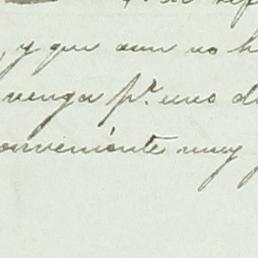 y que aun no h
venga p.r uno d
conveniente muy